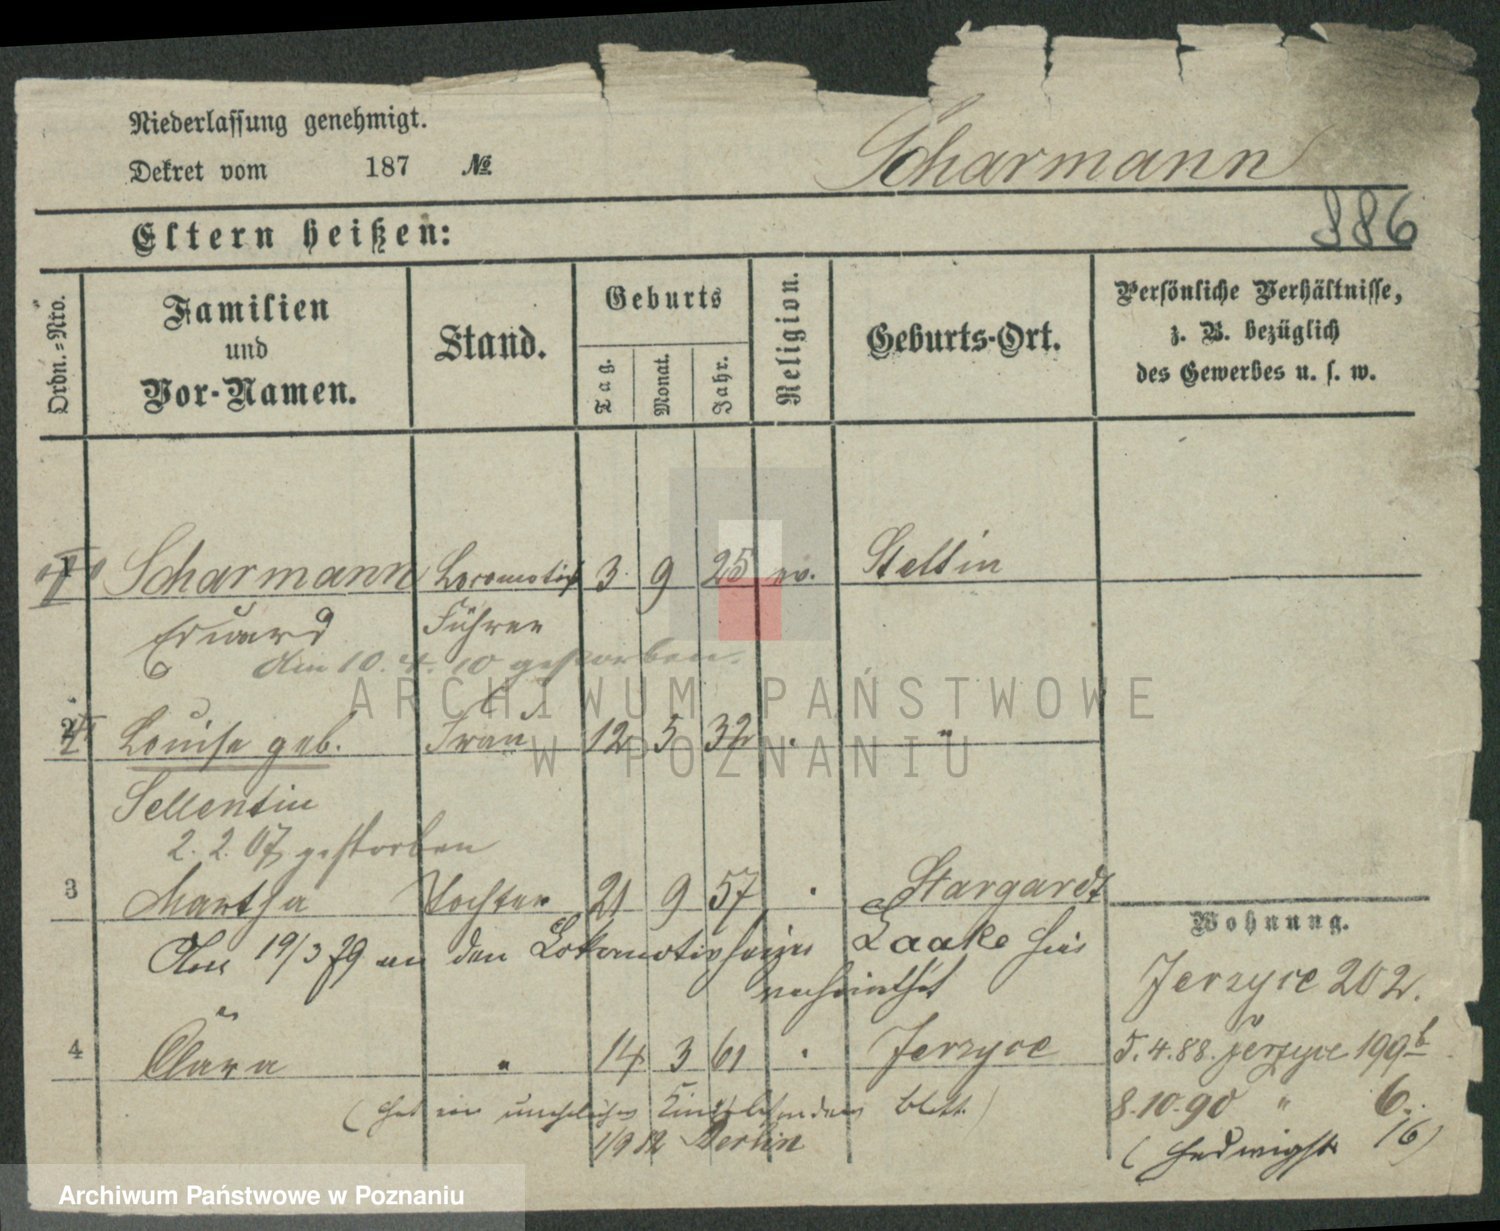 Niederlassung genehmigt.
Dekret vom 187 №
Scharmann
886
Eltern heißen:
Ordn.-Nro.
Familien und Vor-Namen.
Stand.
Geburts
Tag.
Monat.
Jahr.
Religion.
Geburts-Ort.
Persönliche Verhältnisse,
z. B. bezüglich
des Gewerbes u. s. w.
1 Scharmann Locomotiv 3 9 25 ev. Stettin
Eduard Führer
Am 10. 4. 10 gestorben.
2 Louise geb. Frau 12 5 32 . "
Sellentin
2. 2. 07 gestorben
3 Martha Tochter 21 9 57 . Stargardt
Am 19/3 79 an den Lokomotivheizer Laake hier
verheirathet
4 Clara " 14 3 61 . Jerzyce
(hat ein uneheliches Kind besonderes Blatt)
1/9 Berlin
Wohnung.
Jerzyce 202.
5.4.88. Jerzyce 199b
8.10.90 " 6.
(Hedwigstr. 16)
ARCHIWUM PAŃSTWOWE
W POZNANIU
Archiwum Państwowe w Poznaniu